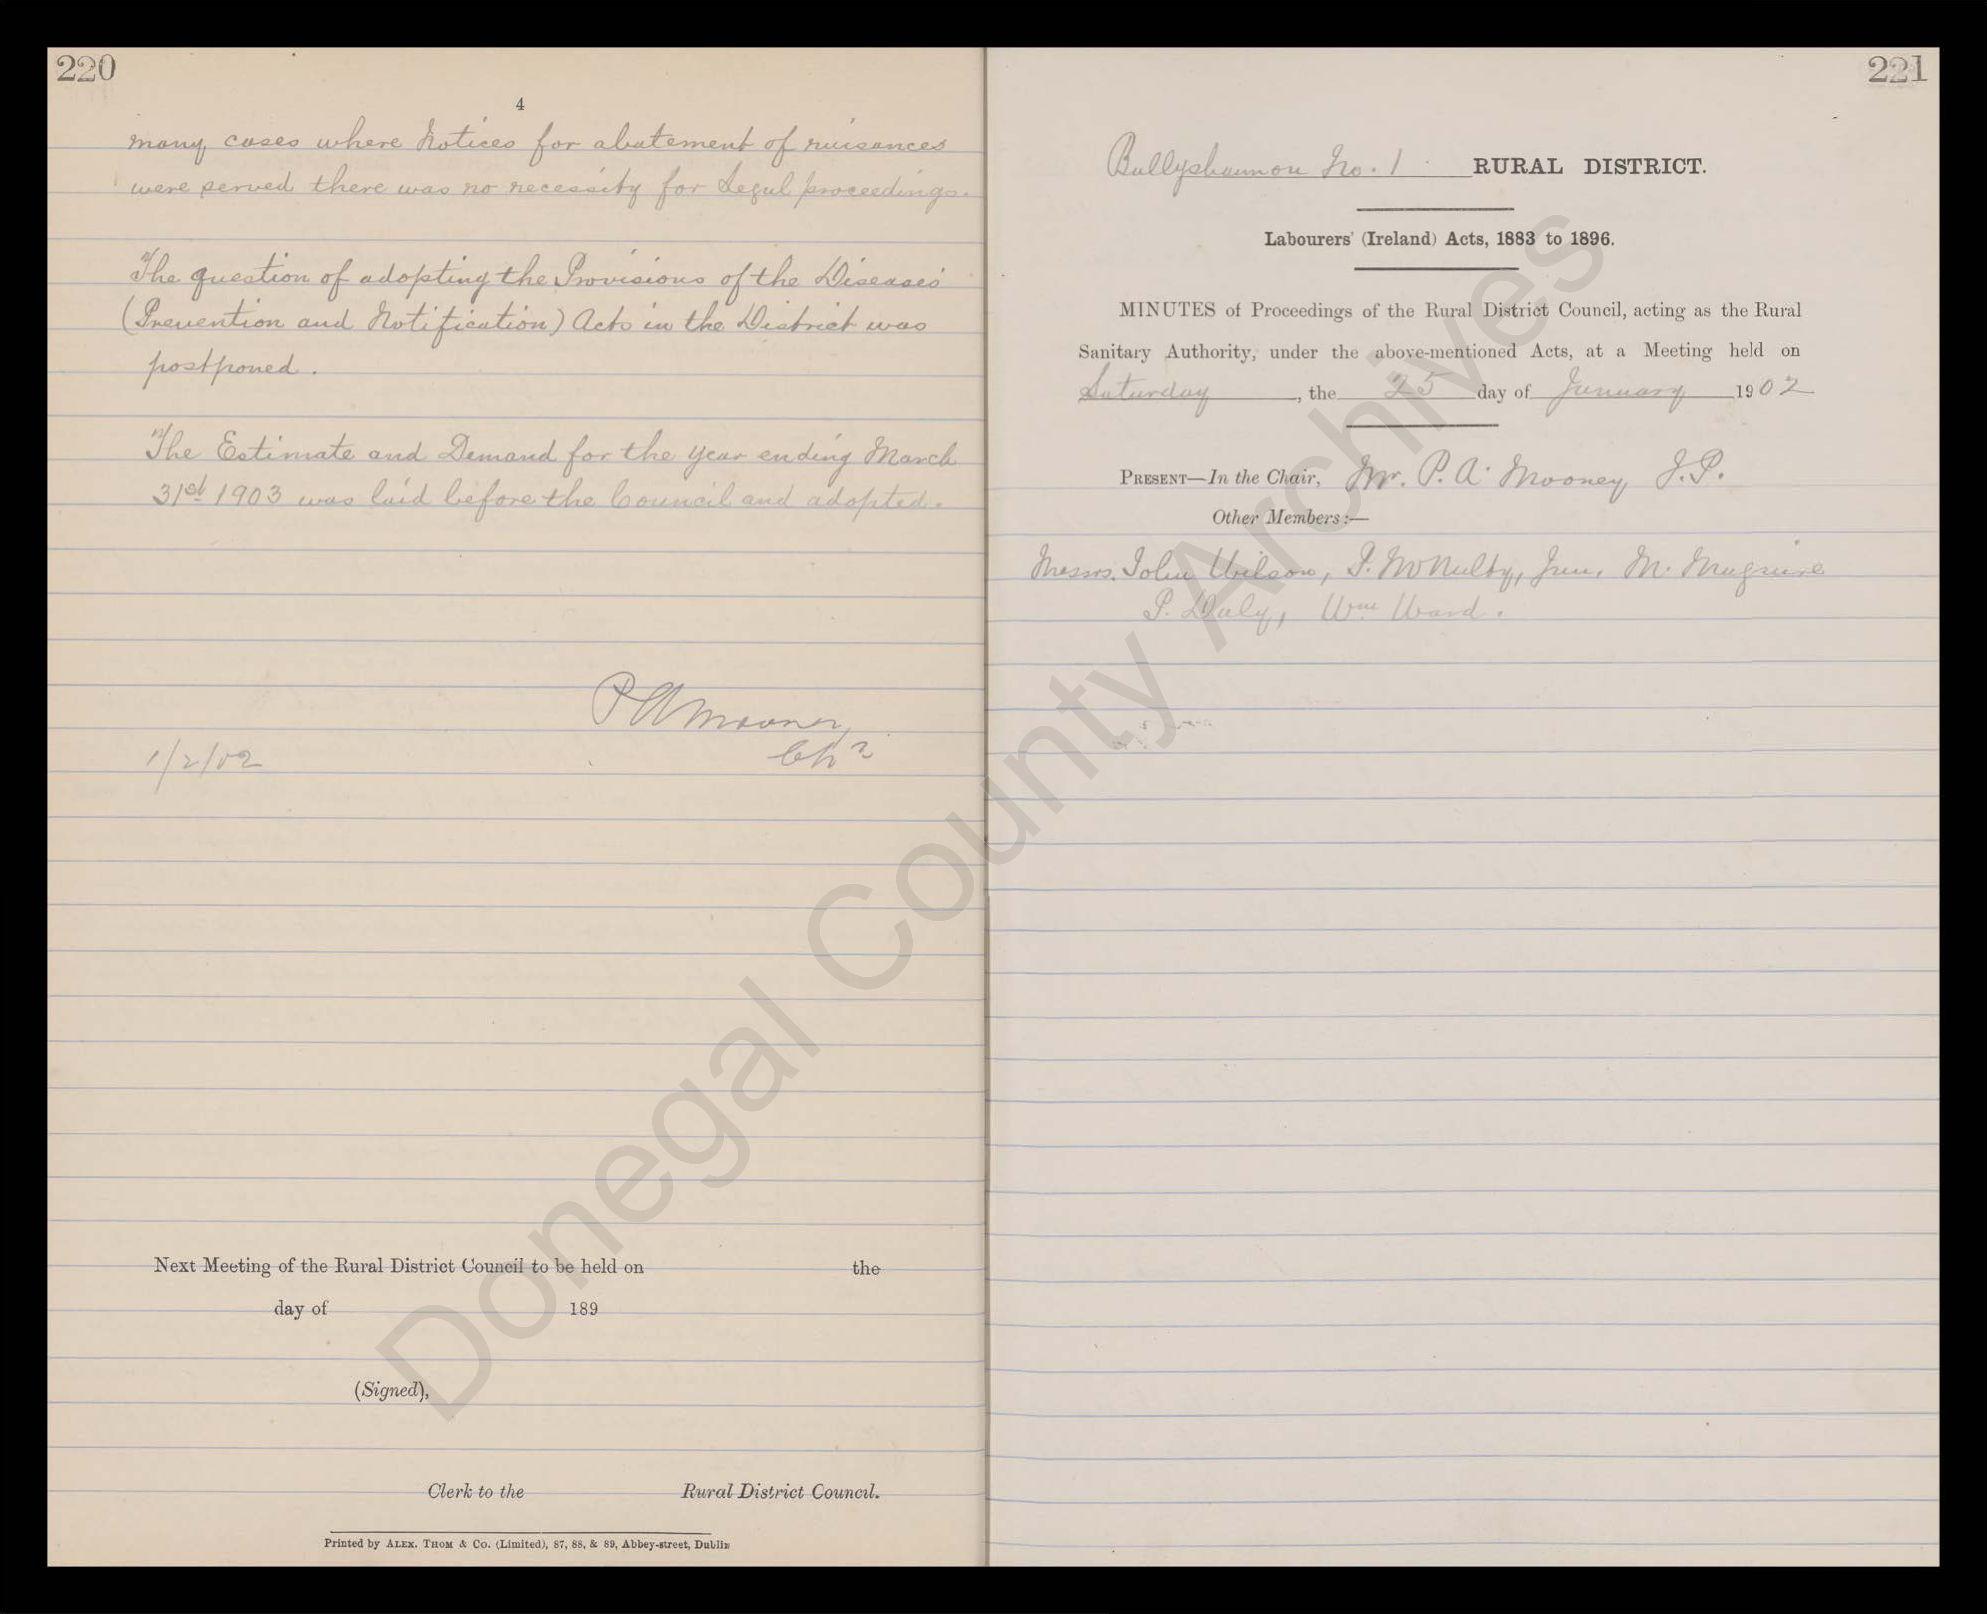 220
4
many cases where Notices for abatement of nuisances
were served there was no necessity for Legal proceedings.
The question of adopting the Provisions of the Diseases
(Prevention and Notification) Acts in the District was
postponed.
The Estimate and Demand for the year ending March
31st 1903 was laid before the Council and adopted.
P A Mooney
Chn
1/2/02
Next Meeting of the Rural District Council to be held on the
day of 189
(Signed),
Clerk to the Rural District Council.
Printed by ALEX. THOM & CO. (Limited), 87, 88, & 89, Abbey-street, Dublin
221
Ballyshannon No. 1 RURAL DISTRICT.
Labourers' (Ireland) Acts, 1883 to 1896.
MINUTES of Proceedings of the Rural District Council, acting as the Rural
Sanitary Authority, under the above-mentioned Acts, at a Meeting held on
Saturday, the 25 day of January 1902
PRESENT—In the Chair, Mr. P. A. Mooney, J.P.
Other Members:—
Messrs. John Wilson, P. McNulty, Jun. M. Maguire
P. Daly, Wm Ward.
Donegal County Archives